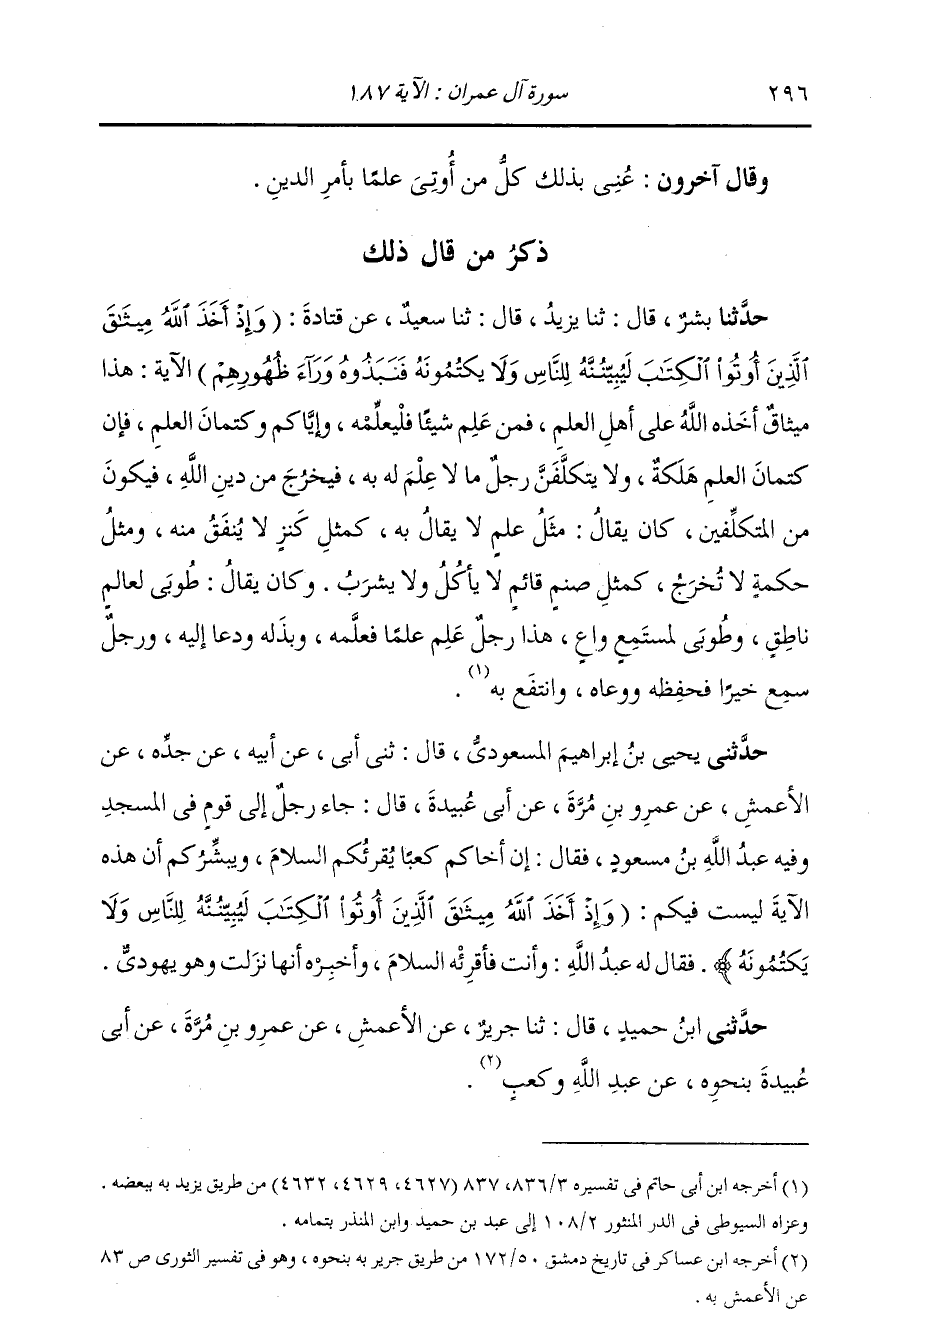 ٢٩٦ سورة آل عمران : الآية ١٨٧
وقال آخرون : عُنِى بذلك كلُّ من أُوتِىَ علمًا بأمرِ الدينِ .
ذكرُ من قال ذلك
حدَّثنا بشرٌ ، قال : ثنا يزيدُ ، قال : ثنا سعيدٌ ، عن قتادةَ : ( وَإِذْ أَخَذَ ٱللَّهُ مِيثَٰقَ
ٱلَّذِينَ أُوتُوا۟ ٱلْكِتَٰبَ لَيُبَيِّنُنَّهُ لِلنَّاسِ وَلَا يَكْتُمُونَهُ فَنَبَذُوهُ وَرَآءَ ظُهُورِهِمْ ) الآية : هذا
ميثاقٌ أخَذه اللَّهُ على أهلِ العلمِ ، فمن عَلِم شيئًا فلْيعلِّمْه ، وإيَّاكم وكتمانَ العلمِ ، فإن
كتمانَ العلمِ هَلَكةٌ ، ولا يتكلَّفَنَّ رجلٌ ما لا عِلْمَ له به ، فيخرُجَ من دينِ اللَّهِ ، فيكونَ
من المتكلِّفين ، كان يقالُ : مثَلُ علمٍ لا يقالُ به ، كمثلِ كَنزٍ لا يُنفَقُ منه ، ومثلُ
حكمةٍ لا تُخرَجُ ، كمثلِ صنمٍ قائمٍ لا يأكُلُ ولا يشرَبُ . وكان يقالُ : طُوبَى لعالمٍ
ناطِقٍ ، وطُوبَى لمستَمِعٍ واعٍ ، هذا رجلٌ عَلِم علمًا فعلَّمه ، وبذَله ودعا إليه ، ورجلٌ
سمِع خيرًا فحفِظه ووعاه ، وانتفَع به(١) .
حدَّثنى يحيى بنُ إبراهيمَ المسعودىُّ ، قال : ثنى أبى ، عن أبيه ، عن جدِّه ، عن
الأعمشِ ، عن عمرِو بنِ مُرَّةَ ، عن أبى عُبيدةَ ، قال : جاء رجلٌ إلى قومٍ فى المسجدِ
وفيه عبدُ اللَّهِ بنُ مسعودٍ ، فقال : إن أخاكم كعبًا يُقرئُكم السلامَ ، ويبشِّرُكم أن هذه
الآيةَ ليست فيكم : ( وَإِذْ أَخَذَ ٱللَّهُ مِيثَٰقَ ٱلَّذِينَ أُوتُوا۟ ٱلْكِتَٰبَ لَيُبَيِّنُنَّهُ لِلنَّاسِ وَلَا
يَكْتُمُونَهُ ﴾ . فقال له عبدُ اللَّهِ : وأنت فأقرِئْه السلامَ ، وأخبِرْه أنها نزَلت وهو يهودىٌّ .
حدَّثنى ابنُ حميدٍ ، قال : ثنا جريرٌ ، عن الأعمشِ ، عن عمرِو بنِ مُرَّةَ ، عن أبى
عُبيدةَ بنحوِه ، عن عبدِ اللَّهِ وكعبٍ(٢) .
(١) أخرجه ابن أبى حاتم فى تفسيره ٨٣٦/٣، ٨٣٧ (٤٦٢٧، ٤٦٢٩، ٤٦٣٢) من طريق يزيد به ببعضه .
وعزاه السيوطى فى الدر المنثور ١٠٨/٢ إلى عبد بن حميد وابن المنذر بتمامه .
(٢) أخرجه ابن عساكر فى تاريخ دمشق ١٧٢/٥٠ من طريق جرير به بنحوه ، وهو فى تفسير الثورى ص ٨٣
عن الأعمش به .